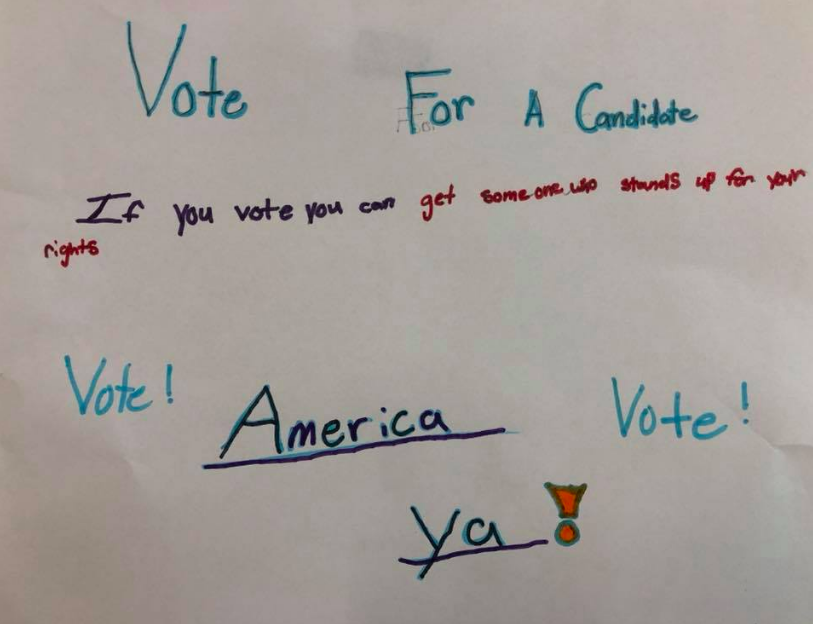 Vote For A Candidate
If you vote you can get someone who stands up for your
rights
Vote! America Vote!
ya!